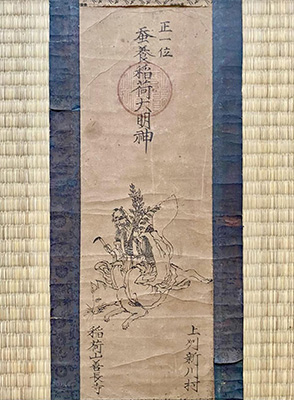 正一位
蚕養稲荷大明神
上州新川村
稲荷山善長寺